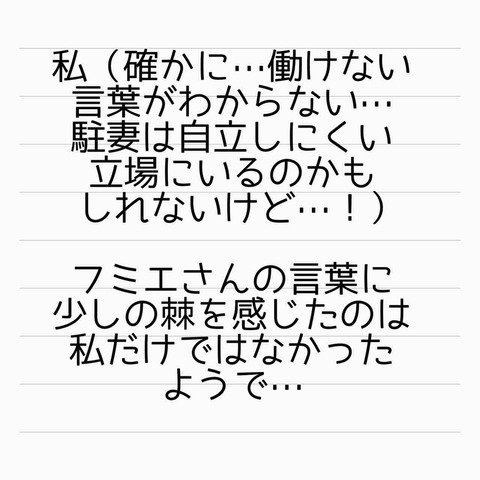 私（確かに…働けない
言葉がわからない…
駐妻は自立しにくい
立場にいるのかも
しれないけど…！）
フミエさんの言葉に
少しの棘を感じたのは
私だけではなかった
ようで…